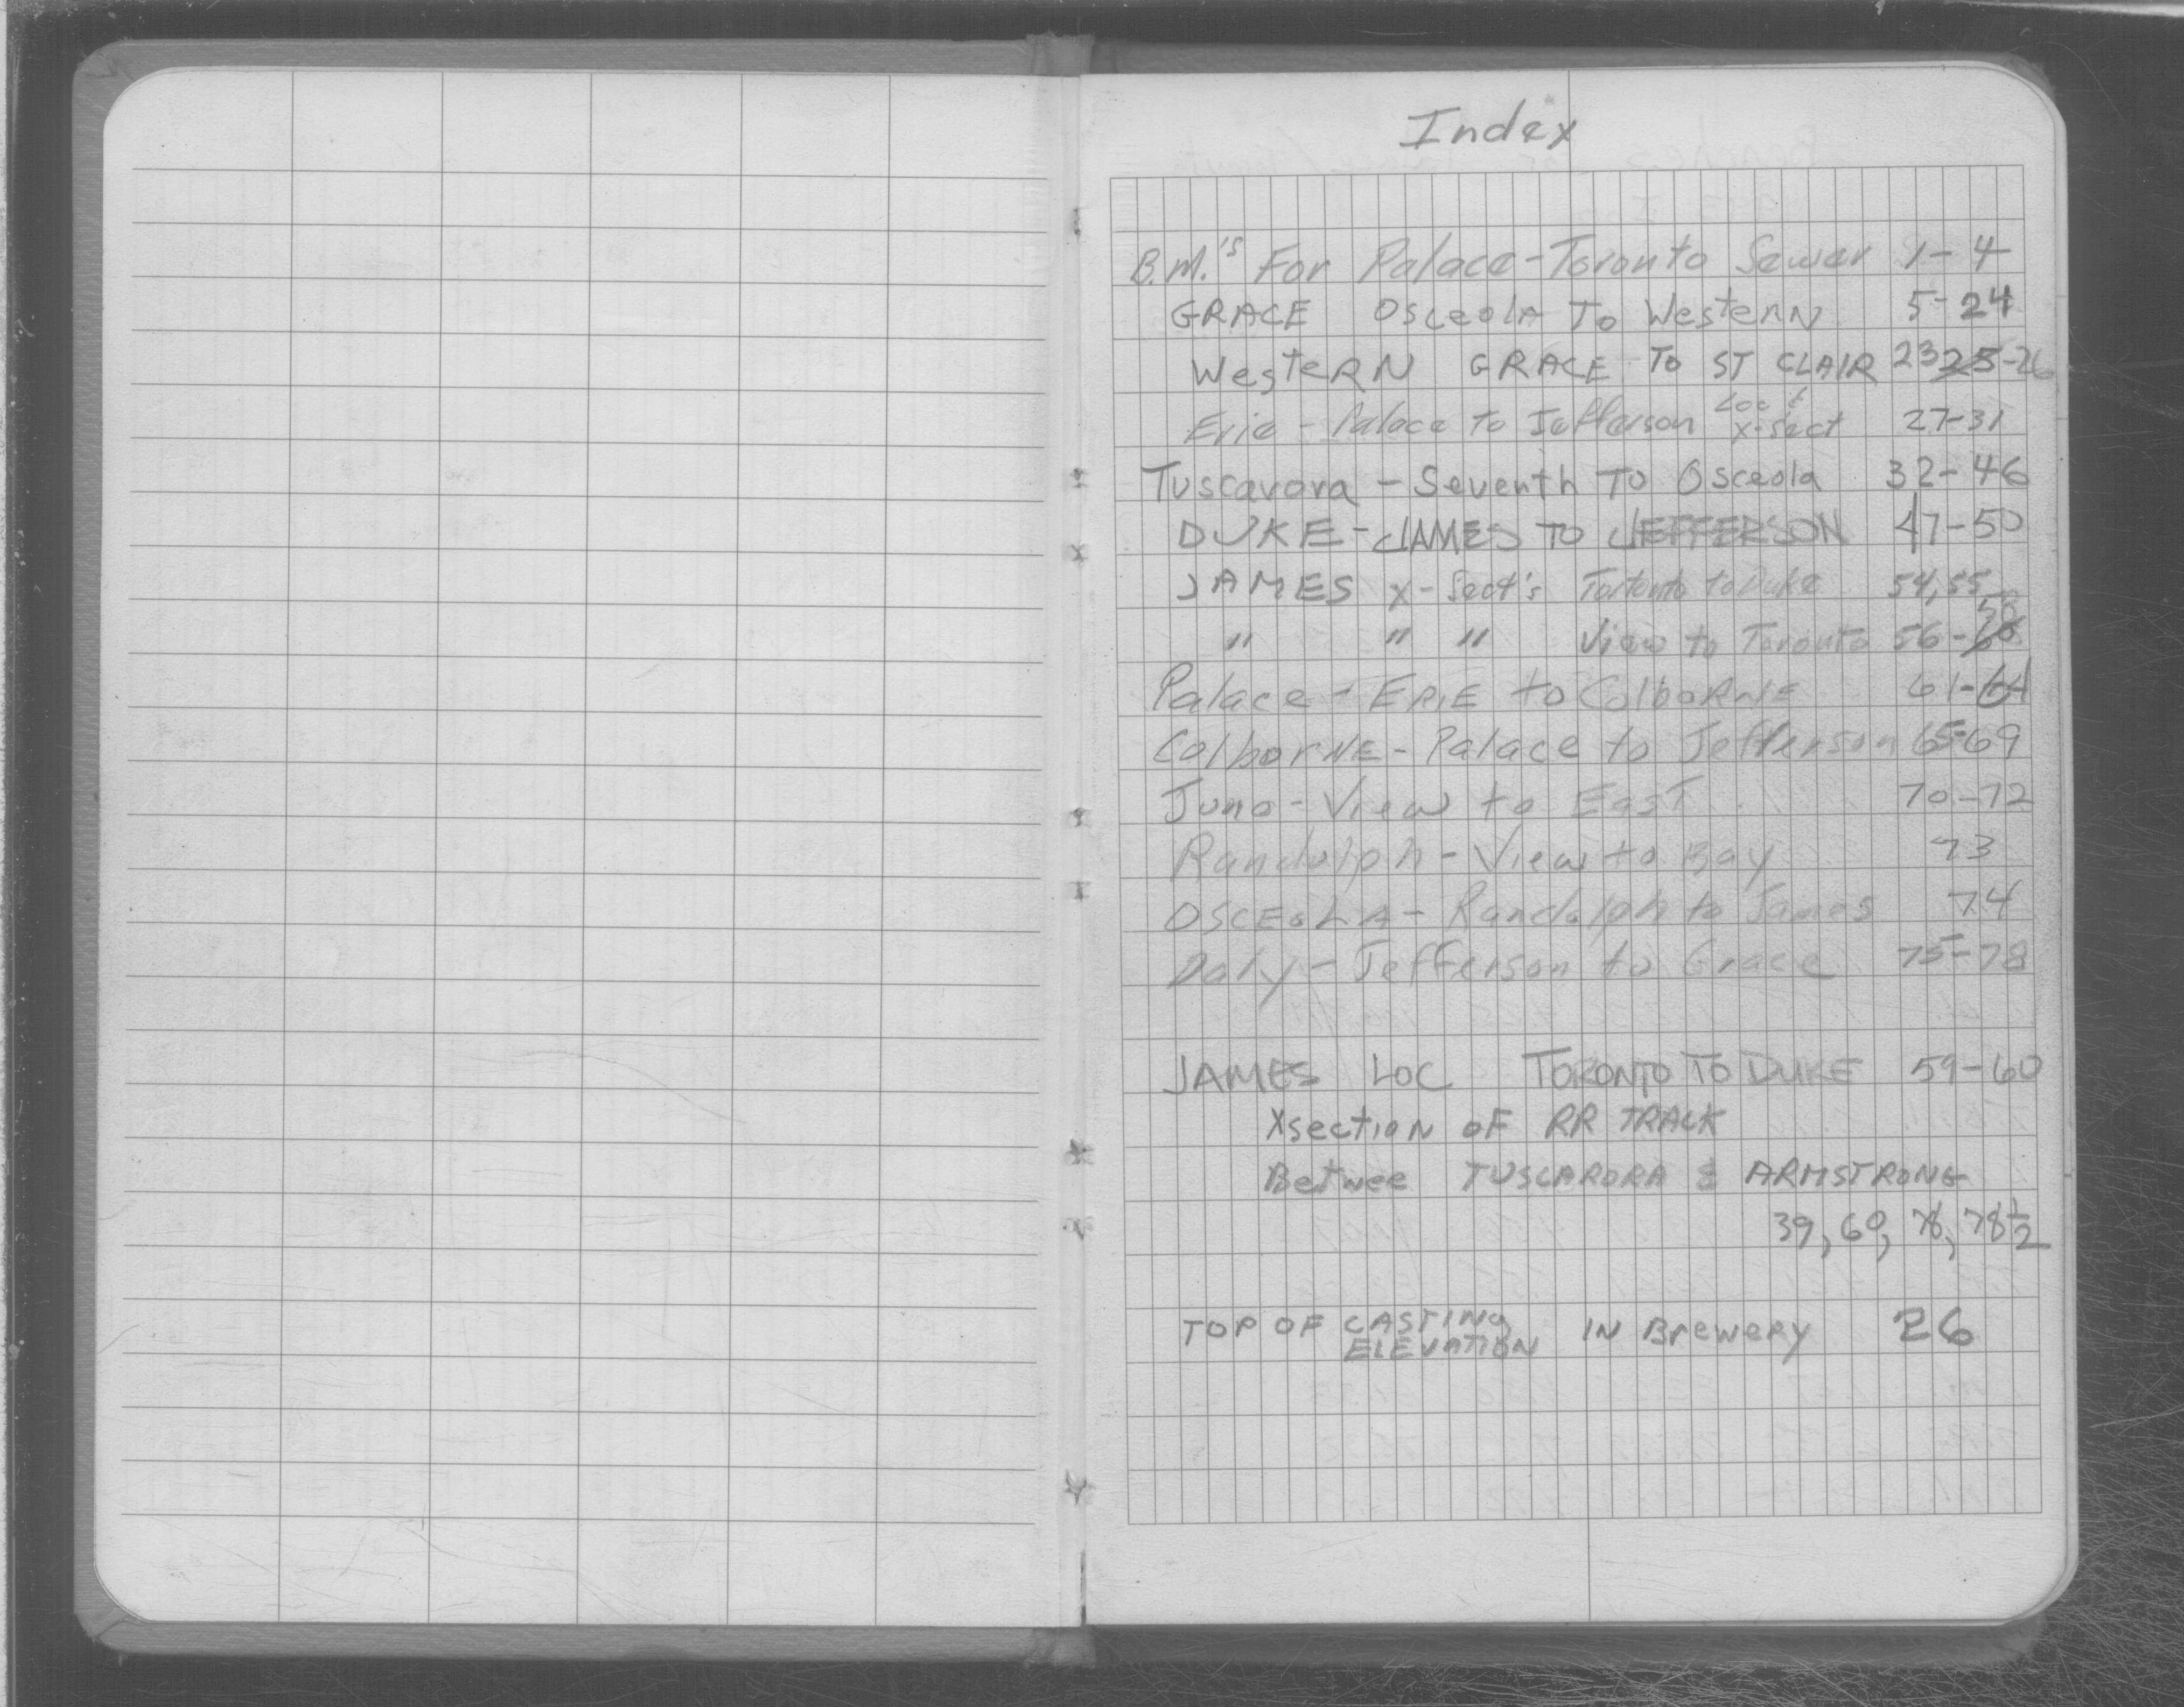 Index
B.M.'s For Palace-Toronto Sewer 1-4
GRACE Osceola To Western 5-24
Western GRACE To ST CLAIR 23 25-26
Erie - Palace to Jefferson Loc & x-sect 27-31
Tuscarora - Seventh To Osceola 32-46
DUKE - JAMES TO JEFFERSON 47-50
JAMES x-Sect's Toronto to Duke 54,55
" " " View to Toronto 56-58
Palace - ERIE to Colborne 61-64
Colborne - Palace to Jefferson 65-69
Juno - View to East 70-72
Randolph - View to Bay 73
OSCEOLA - Randolph to James 74
Daly - Jefferson to Grace 75-78
JAMES LOC TORONTO TO DUKE 59-60
Xsection OF RR TRACK
Betwee TUSCARORA & ARMSTRONG
39, 60, 78, 78½
TOP OF CASTING ELEVATION IN Brewery 26